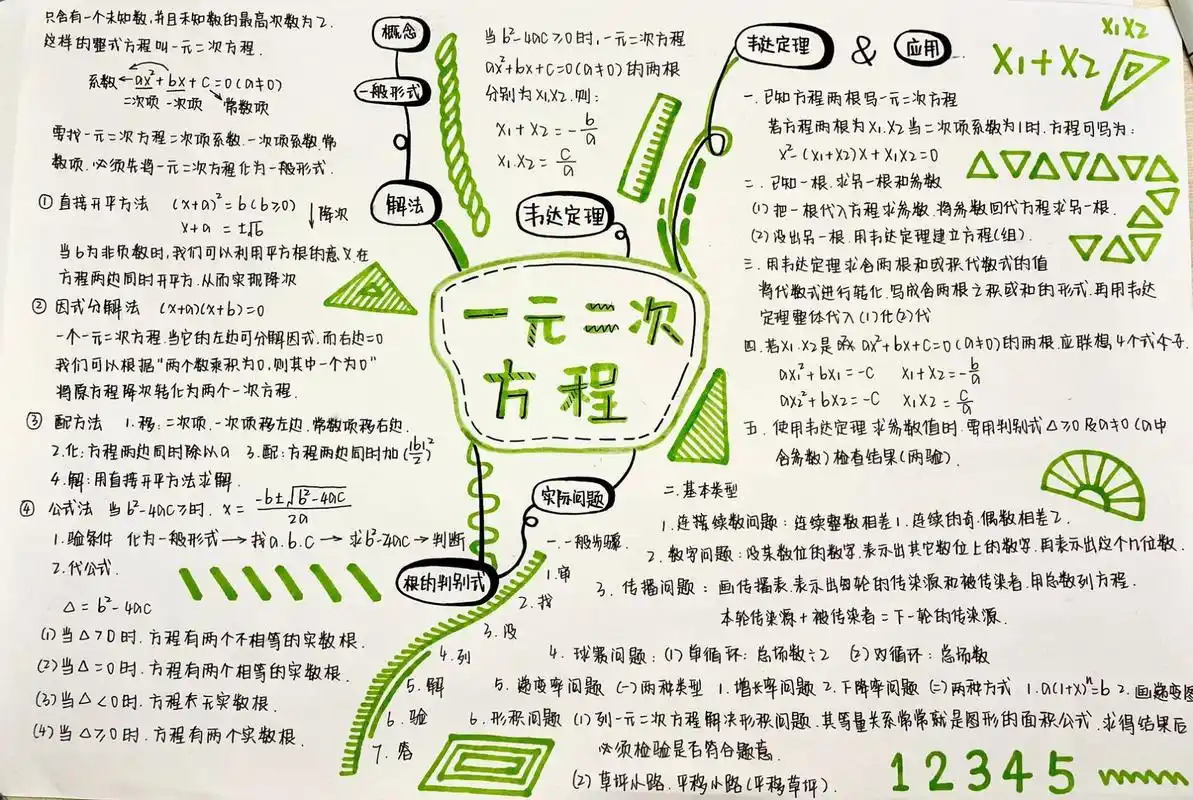 只含有一个未知数,并且未知数的最高次数为2.
这样的整式方程叫一元二次方程.
系数←ax²+bx+c=0(a≠0)
二次项 一次项 常数项
要找一元二次方程二次项系数.一次项系数.常
数项.必须先将一元二次方程化为一般形式.
概念
一般形式
解法
① 直接开平方法 (x+a)²=b(b≥0)
x+a=±√b
↓降次
当b为非负数时,我们可以利用平方根的意义在
方程两边同时开平方.从而实现降次
② 因式分解法 (x+a)(x+b)=0
一个一元二次方程.当它的左边可分解因式.而右边=0
我们可以根据"两个数乘积为0,则其中一个为0"
将原方程降次转化为两个一次方程.
③ 配方法 1.移:二次项.一次项移左边.常数项移右边.
2.化:方程两边同时除以a 3.配:方程两边同时加(|b|/2)²
4.解:用直接开平方法求解.
④ 公式法 当b²-4ac≥时. x=(-b±√b²-4ac)/2a
1.验条件 化为一般形式→找a.b.c→求b²-4ac→判断
2.代公式.
△=b²-4ac
(1)当△>0时.方程有两个不相等的实数根.
(2)当△=0时.方程有两个相等的实数根.
(3)当△<0时.方程无实数根.
(4)当△≥0时.方程有两个实数根.
根的判别式
当b²-4ac≥0时,一元二次方程
ax²+bx+c=0(a≠0)的两根
分别为x1.x2.则:
x1+x2=-b/a
x1.x2=c/a
韦达定理
一元二次
方程
韦达定理 & 应用
x1x2
x1+x2
一.已知方程两根写一元二次方程
若方程两根为x1.x2当二次项系数为1时.方程可写为:
x²-(x1+x2)x+x1x2=0
二.已知一根.求另一根和参数
(1)把一根代入方程求参数.将参数回代方程求另一根.
(2)设出另一根.用韦达定理建立方程(组).
三.用韦达定理求含两根和或积代数式的值
将代数式进行转化.写成含两根之积或和的形式.再用韦达
定理整体代入(1)化(2)代
四.若x1.x2是ax²+bx+c=0(a≠0)的两根.应联想.4个式子.
ax1²+bx1=-c x1+x2=-b/a
ax2²+bx2=-c x1x2=c/a
五.使用韦达定理求参数值时.要用判别式△≥0及a≠0(a中
含参数)检查结果(两验).
实际问题
一.一般步骤.
1.审
2.找
3.设
4.列
5.解
6.验
7.答
二.基本类型
1.连续数问题:连续整数相差1.连续的奇.偶数相差2.
2.数字问题:设某数位的数字.表示出其它数位上的数字.再表示出这个几位数.
3.传播问题:画传播表.表示出每轮的传染源和被传染者.用总数列方程.
本轮传染源+被传染者=下一轮的传染源.
4.球赛问题:(1)单循环:总场数÷2 (2)双循环:总场数
5.递变率问题 (一)两种类型 1.增长率问题 2.下降率问题 (二)两种方式 1.a(1+x)ⁿ=b 2.画递变图
6.形积问题 (1)列一元二次方程解决形积问题.其等量关系常常就是图形的面积公式.求得结果后
必须检验是否符合题意.
(2)草坪小路.平移小路(平移草坪).
1 2 3 4 5